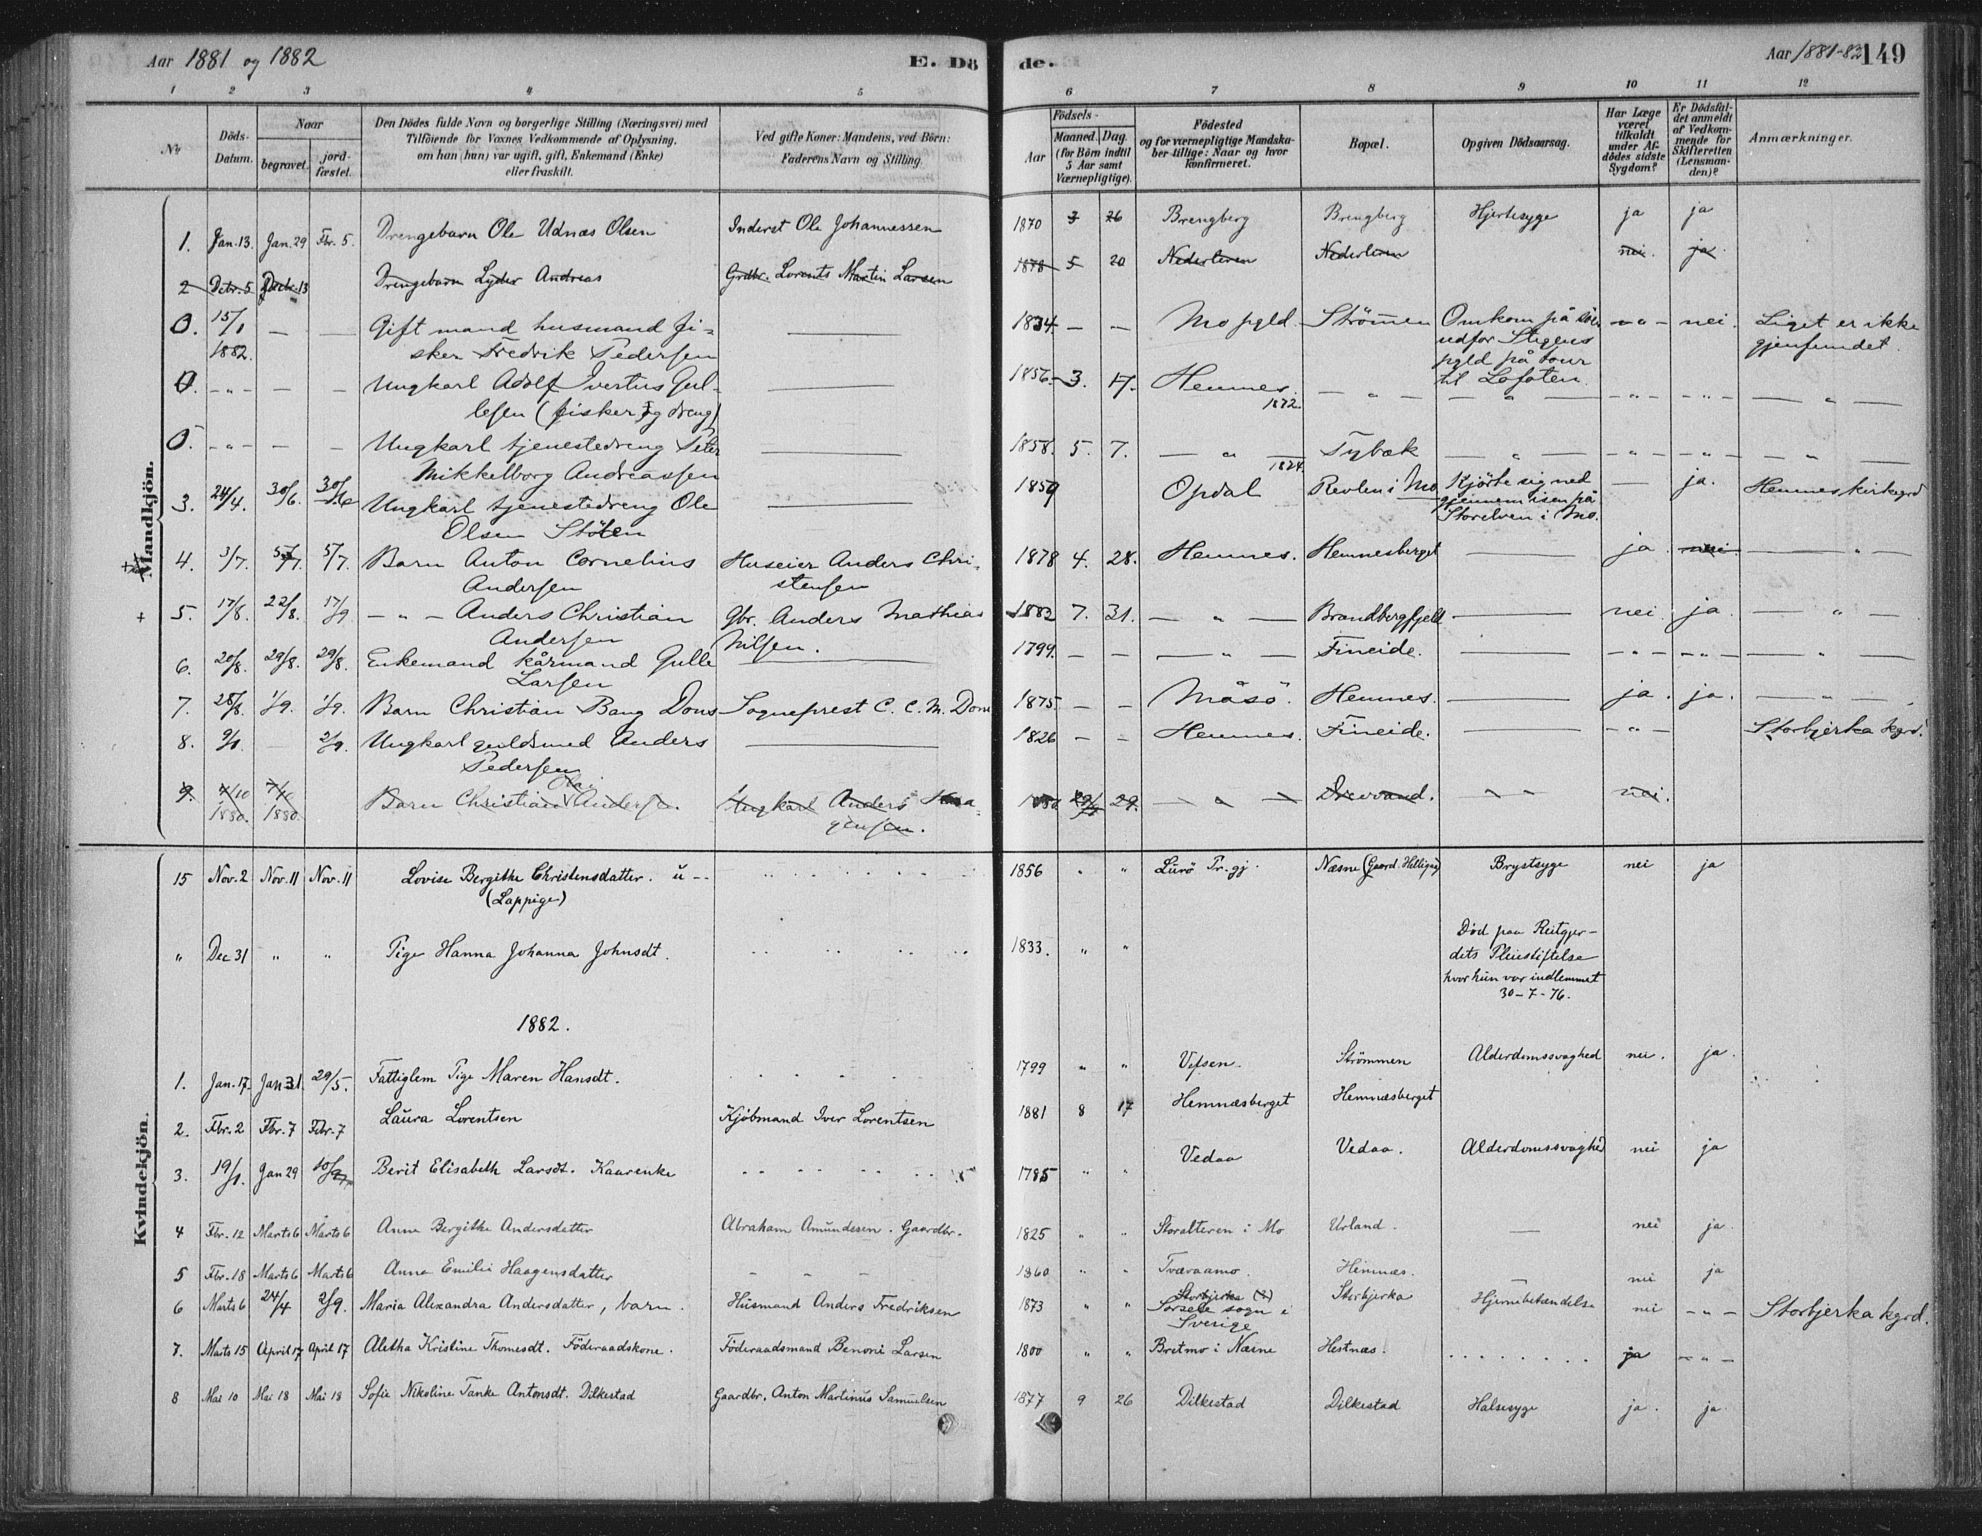 Aar 1881 og 1882
E. Dö
de.
Aar 1881-82
149
1 2 3 4 5 6 7 8 9 10 11 12
No
Döds-Datum.
Naar
begravet.
jord-fæstet.
Den Dödes fulde Navn og borgerlige Stilling (Næringsvei) med
Tilföiende for Voxnes Vedkommende af Oplysning,
om han (hun) var ugift, gift, Enkemand (Enke)
eller fraskilt.
Ved gifte Koner: Mandens, ved Börn:
Faderens Navn og Stilling.
Födsels-
Aar
Maaned. Dag.
(for Börn indtil
5 Aar samt
Værnepligtige).
Födested
og for værnepligtige Mandska-
ber tillige: Naar og hvor
konfirmeret.
Bopæl.
Opgiven Dödsaarsag.
Har Læge
været
tilkaldt
under Af-
dödes sidste
Sygdom?
Er Dödsfal-
det anmeldt
af Vedkom-
mende for
Skifteretten
(Lensman-
den)?
Anmærkninger.
Mandkjön.
1. Jan. 13. Jan. 29 Fbr. 5. Drengebarn Ole Udnæs Olsen Inderst Ole Johannessen 1870 3 26 Brengberg Brengberg Hjertesyge ja ja
2 Dcbr. 5 13 Drengebarn Lyder Andreas Grdbr. Lorents Martin Larsen 1878 5 20 Nederleren Nederleren nei. ja
0. 15/1 — — Gift mand husmand fi- — 1834 — — Mo pgld. Strömen Omkom på söen — " — nei. Liget er ikke
1882. sker Fredrik Pedersen udfor Stegens gjenfundet.
pgld på tour
0. — " — — — Ungkarl Adolf Ivertus Gul- — 1856. 3. 17. Hemnes. — " — til Lofoten. — " — — " — — " —
lesen (fisker og dreng) 1872
0. — " — — — Ungkarl tjenestedreng Peter — 1858. 5. 7. — " — Tybæk — " — — " — — " — — " —
Mikkelborg Andreassen 1874.
3. 24/4. 30/6. 30/6 Ungkarl tjenestedreng Ole 1859 Opdal Revlen i Mo Kjörte sig ned — ja. Hemnes kirkegrd
Olsen Stöten gjennem isen på
Storelven i Mo.
4. 3/7. 5/7. 5/7. Barn Anton Cornelius Huseier Anders Chri- 1878 4. 28. Hemnes. Hemnesberget — ja. nei — " —
Andersen stensen
5. 17/8. 22/8. 17/9 — " — Anders Christian Gbr. Anders Mathias 1882 7. 31. — " — Brandbergfjeld — nei. ja. — " —
Andersen Nilsen.
6. 20/8. 29/8. 29/8. Enkemand kårmand Gulle — 1799. — — — " — Fineide. — — " — — " — — " —
Larsen
7. 28/8. 1/9. 1/9. Barn Christian Bang Dons Sogneprest C. C. M. Dons 1875. — — Måsö. Hemnes. — ja. ja. — " —
8. — 2/9. Ungkarl guldsmed Anders — 1826 — — Hemnes. Fineide. — — " — Storbjerka kgrd.
Pedersen
9. 4/10 7/10 Barn Christian Andersen. Ungkarl Anders Haa- 29. — " — Drevvand. — " — nei.
1880. 1880. gensen.
Kvindekjön.
15 Nov. 2 Nov. 11 Nov. 11 Lovise Bergithe Christensdatter. u - - 1856 " " Lurö Pr.gj. Næsne (Gaard. Helligvig) Brystsyge nei ja
(Lappige)
" Dec 31 " " Pige Hanna Johanna Johnsdt. 1833. " " Död paa Reitgjer-
dets Pleiestiftelse
hvor hun var indlemmet
30-7-76.
1882.
1. Jan. 17. Jan 31. 29/5. Fattiglem Pige Maren Hansdt. 1799 " " Vefsen. Strömmen Alderdomssvaghed nei. ja.
2. Fbr. 2 Fbr. 7 Fbr. 7 Laura Lorentsen Kjöbmand Iver Lorentsen 1881 8 17 Hemnæsberget Hemnæsberget
3. 19/1. Jan 29 Berit Elisabeth Larsdt. Kaarenke 1785 " " Vedaa Vedaa. Alderdomssvaghed nei ja
4 Fbr. 12 Marts 6 Marts 6 Anne Bergithe Andersdatter Abraham Amundesen. Gaardbr. 1825 " " Storalteren i Mo Urland. — nei ja.
5 Fbr. 18 Marts 6 Marts 6 Anna Emilie Haagensdatter - - - 1860 " " Tværaamo. Hemnæs. nei ja
6 Marts 6 24/4 2/9. Maria Alexandra Andersdatter, barn. Husmand Anders Fredriksen 1873 " " Storbjerka Storbjerka Hjernebetændelse nei — " — Storbjerka kgrd.
Sorsele sogn i
Sverige
7. Marts 15 April 17 April 17 Aletha Kristine Thomesdt. Föderaadskone. Föderaadsmand Benoni Larsen 1800 " " Bretmo i Næsne Hestnæs. . . . . . . . . ja — " —
8 Mai 10 Mai 18 Mai 18 Sofie Nikoline Tanke Antonsdt. Dilkestad Gaardbr. Anton Martinus Samuelsen 1877 9 26 Dilkestad Dilkestad Halsesyge ja. ja.